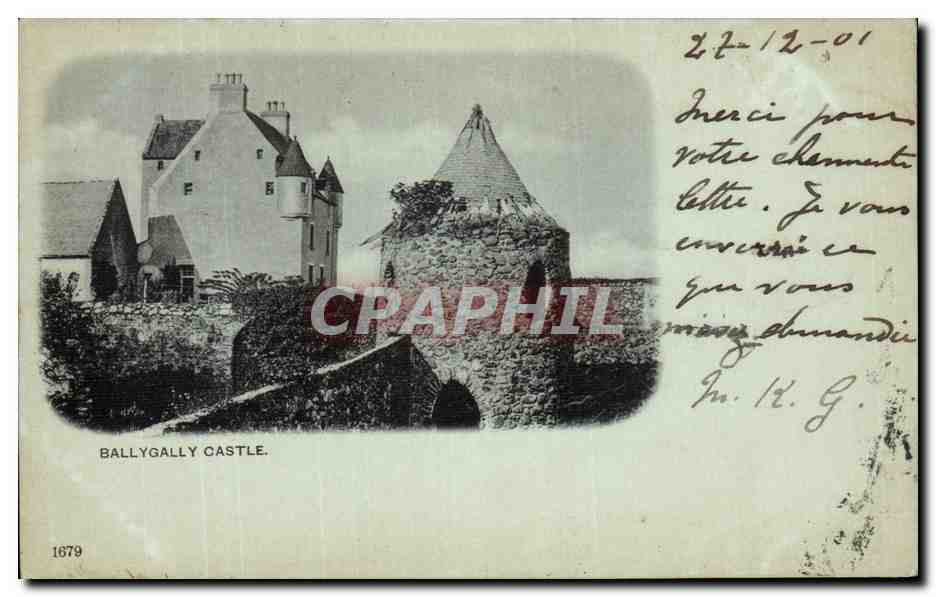 27-12-01
Merci pour
votre charmente
lettre. Je vous
enverrai ce
que vous
demandié
M. K. G.
CPAPHIL
BALLYGALLY CASTLE.
1679